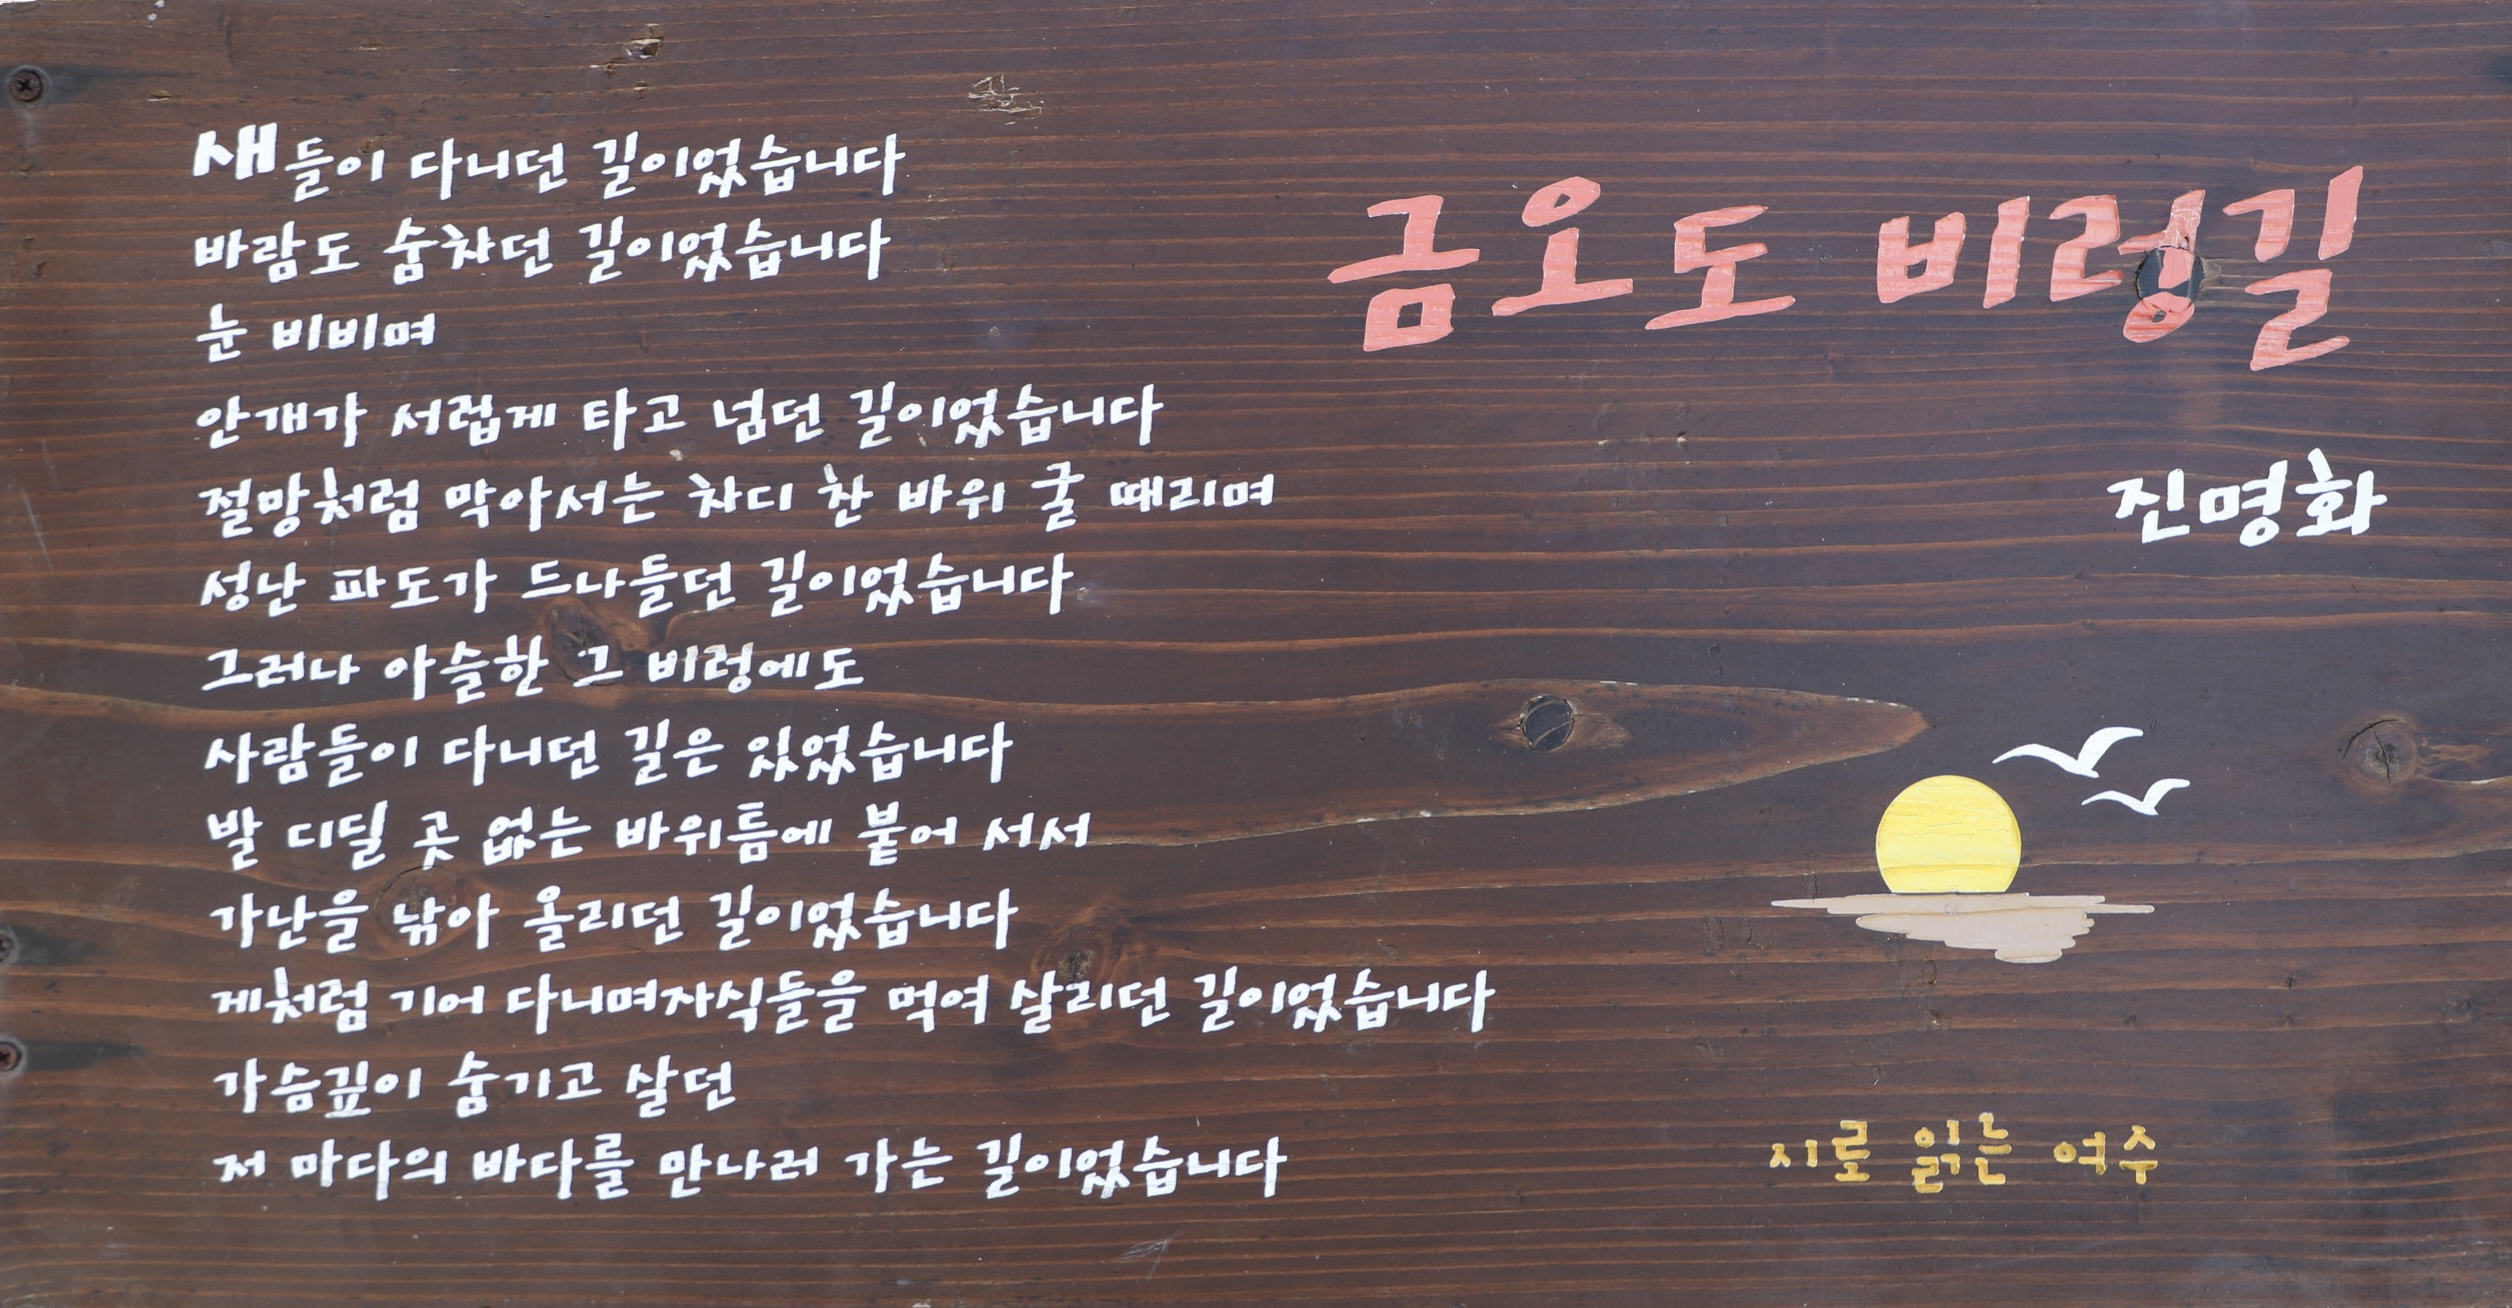 금오도 비렁길
진명화
새들이 다니던 길이었습니다
바람도 숨차던 길이었습니다
눈 비비며
안개가 서럽게 타고 넘던 길이었습니다
절망처럼 막아서는 차디 찬 바위 굴 때리며
성난 파도가 드나들던 길이었습니다
그러나 아슬한 그 비렁에도
사람들이 다니던 길은 있었습니다
발 디딜 곳 없는 바위틈에 붙어 서서
가난을 낚아 올리던 길이었습니다
게처럼 기어 다니며자식들을 먹여 살리던 길이었습니다
가슴깊이 숨기고 살던
저 마다의 바다를 만나러 가는 길이었습니다
시로 읽는 여수